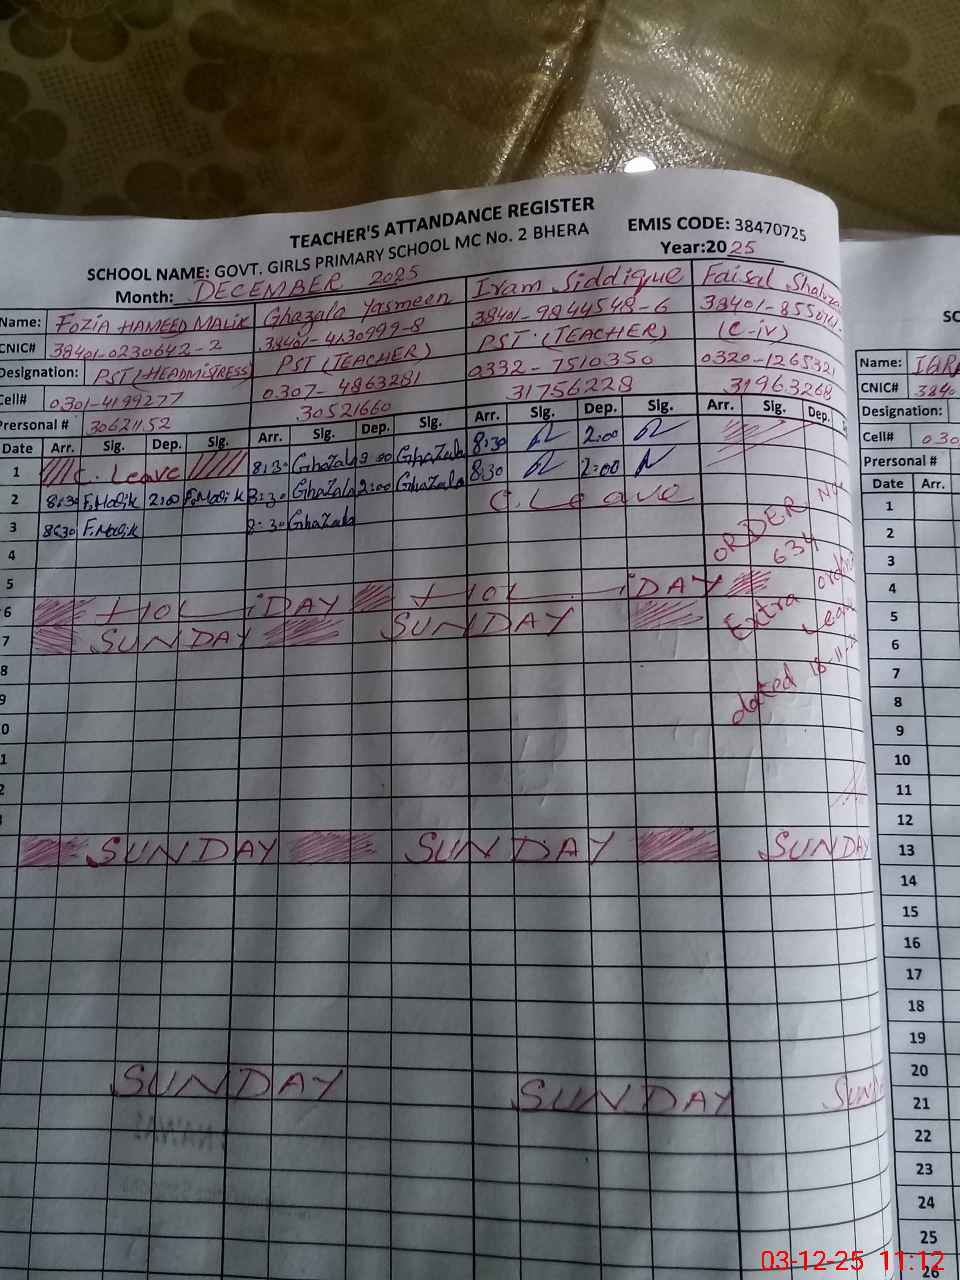 TEACHER'S ATTANDANCE REGISTER
SCHOOL NAME: GOVT. GIRLS PRIMARY SCHOOL MC No. 2 BHERA EMIS CODE: 38470725
Month: DECEMBER 2025 Year:2025
Name: FOZIA HAMEED MALIK Ghazala Yasmeen Iram Siddique Faisal
CNIC# 38401-0230642-2 38401-4130999-8 38401-9844548-6 38401-
Designation: PST (HEADMISTRESS) PST (TEACHER) PST (TEACHER) (C-iv)
Cell# 0301-4199277 0307-4863281 0332-7510350 0320-1265321
Prersonal # 30621152 30521660 31756228 31963268
Date Arr. Sig. Dep. Sig. Arr. Sig. Dep. Sig. Arr. Sig. Dep. Sig. Arr. Sig. Dep.
1 C. Leave 8:30 Ghazala 2:00 Ghazala 8:30 2:00
2 8:30 F.Malik 2:00 F.Malik 8:30 Ghazala 2:00 Ghazala 8:30 2:00
3 8:30 F.Malik 8:30 Ghazala C. Leave
4
5
6 HOLIDAY HOLIDAY
7 SUNDAY SUNDAY
8
9
0
1
2
SUNDAY SUNDAY SUNDAY
SUNDAY SUNDAY
ORDER No
634
Extra
Leave
dated 18-11-
Name:
CNIC# 3840
Designation:
Cell# 030
Prersonal #
Date Arr.
1
2
3
4
5
6
7
8
9
10
11
12
13
14
15
16
17
18
19
20
21
22
23
24
25
26
03-12-25 11:12